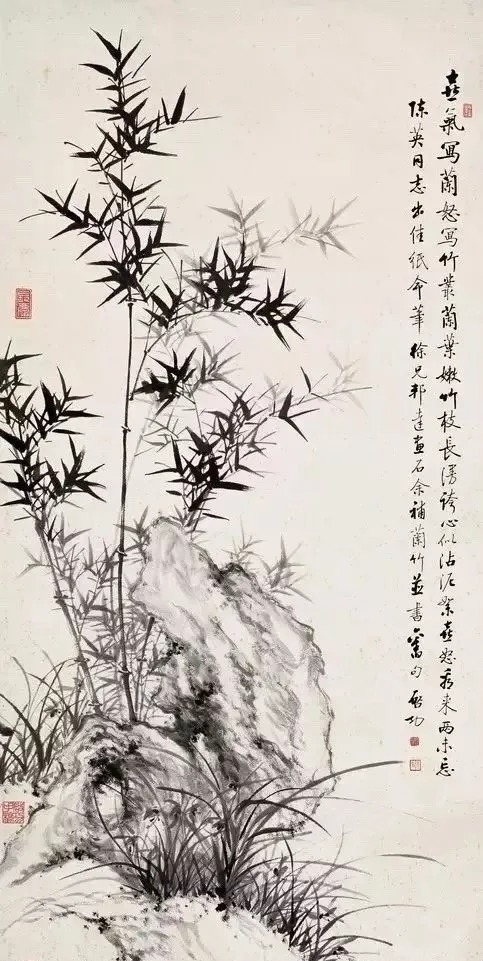 喜氣寫蘭怒寫竹叢蘭葉嫩竹枝長漫誇心似沾泥絮喜怒看来兩未忘
陳英同志出佳紙命筆徐兄邦達畫石余補蘭竹並書舊句啟功